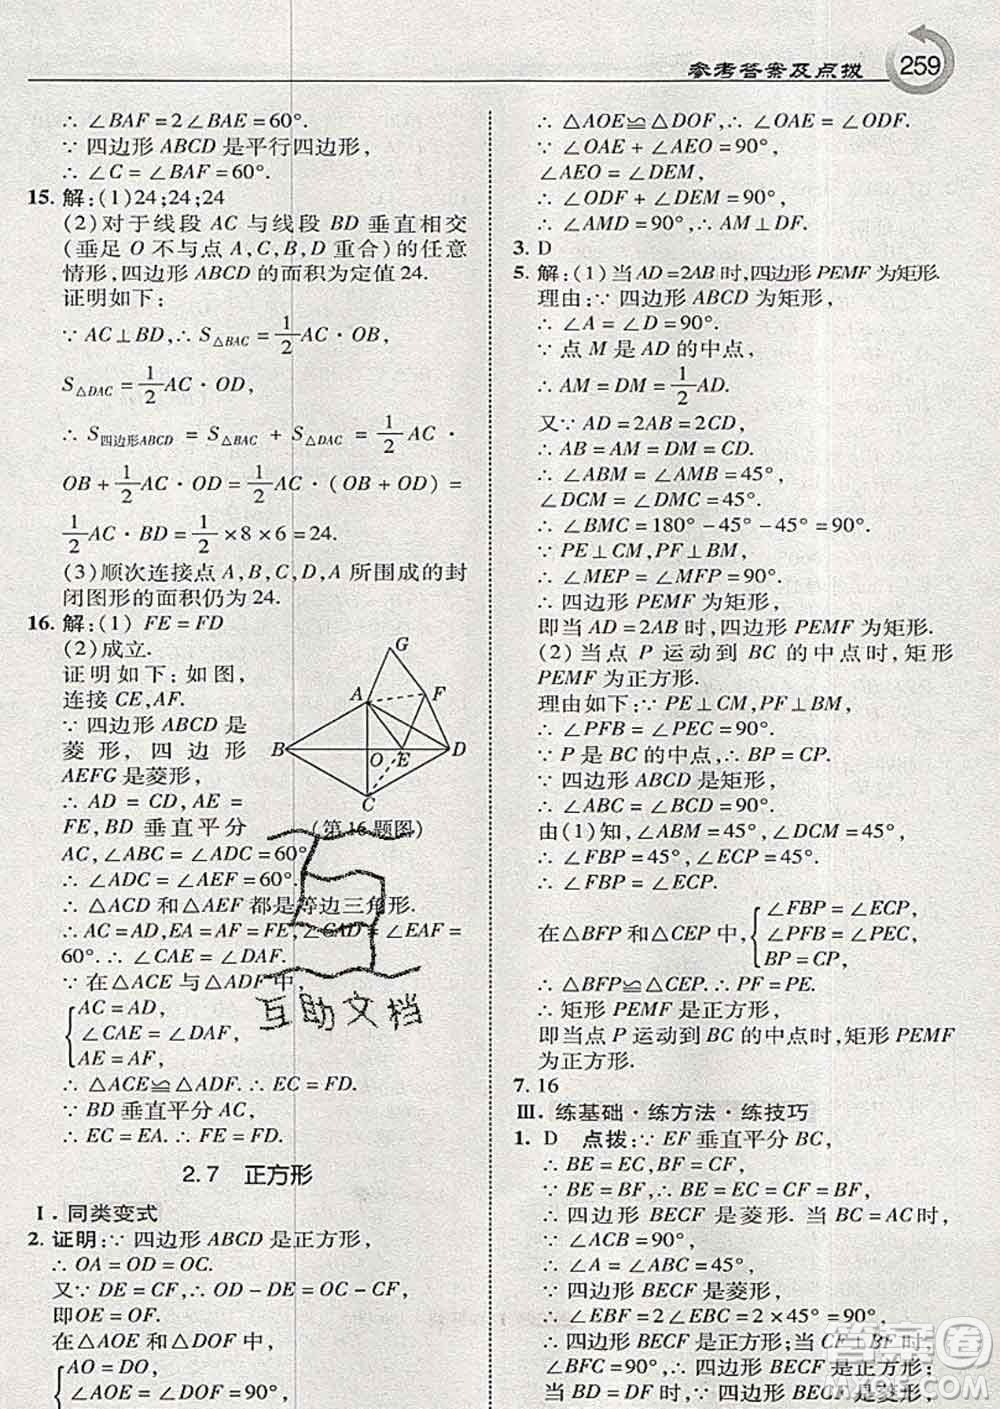 参考答案及点拨
259
∴ ∠BAF=2∠BAE=60°.
∵ 四边形 ABCD 是平行四边形,
∴ ∠C=∠BAF=60°.
15. 解:(1)24;24;24
(2)对于线段 AC 与线段 BD 垂直相交
(垂足 O 不与点 A,C,B,D 重合)的任意
情形,四边形 ABCD 的面积为定值 24.
证明如下:
∵ AC⊥BD,∴ S△BAC=1/2 AC·OB,
S△DAC=1/2 AC·OD,
∴ S四边形ABCD = S△BAC + S△DAC = 1/2 AC·
OB+1/2 AC·OD=1/2 AC·(OB+OD)=
1/2 AC·BD=1/2×8×6=24.
(3)顺次连接点 A,B,C,D,A 所围成的封
闭图形的面积仍为 24.
16. 解:(1) FE=FD
(2)成立.
证明如下:如图,
连接 CE,AF.
∵ 四边形 ABCD 是
菱形,四边形
AEFG 是菱形,
∴ AD = CD,AE =
FE,BD 垂直平分
AC,∠ABC=∠ADC=60°
∴ ∠ADC=∠AEF=60°.
∴ △ACD 和△AEF 都是等边三角形.
∴ AC=AD,EA=AF=FE,∠CAD=∠EAF=
60°. ∴ ∠CAE=∠DAF.
∵ 在△ACE 与△ADF 中,
AC=AD,
∠CAE=∠DAF,
AE=AF,
∴ △ACE≌△ADF. ∴ EC=FD.
∵ BD 垂直平分 AC,
∴ EC=EA. ∴ FE=FD.
G
A
F
B
O
E
D
C
(第 16 题图)
互助文档
2.7 正方形
Ⅰ. 同类变式
2. 证明:∵ 四边形 ABCD 是正方形,
∴ OA=OD=OC.
又∵ DE=CF,∴ OD-DE=OC-CF,
即OE=OF.
在△AOE 和△DOF 中,
AO=DO,
∠AOD=∠DOF=90°,
∴ △AOE≌△DOF,∴ ∠OAE=∠ODF.
∵ ∠OAE+∠AEO=90°,
∠AEO=∠DEM,
∴ ∠ODF+∠DEM=90°,
∴ ∠AMD=90°,∴ AM⊥DF.
3. D
5. 解:(1)当 AD=2AB 时,四边形 PEMF 为矩形.
理由:∵ 四边形 ABCD 为矩形,
∴ ∠A=∠D=90°.
∵ 点 M 是 AD 的中点,
∴ AM=DM=1/2 AD.
又∵ AD=2AB=2CD,
∴ AB=AM=DM=CD.
∴ ∠ABM=∠AMB=45°,
∠DCM=∠DMC=45°.
∴ ∠BMC=180°-45°-45°=90°.
∵ PE⊥CM,PF⊥BM,
∴ ∠MEP=∠MFP=90°.
∴ 四边形 PEMF 为矩形,
即当 AD=2AB 时,四边形 PEMF 为矩形.
(2)当点 P 运动到 BC 的中点时,矩形
PEMF 为正方形.
理由如下:∵ PE⊥CM,PF⊥BM,
∴ ∠PFB=∠PEC=90°.
∵ P 是 BC 的中点,∴ BP=CP.
∵ 四边形 ABCD 是矩形,
∴ ∠ABC=∠BCD=90°.
由(1)知,∠ABM=45°,∠DCM=45°,
∴ ∠FBP=45°,∠ECP=45°,
∴ ∠FBP=∠ECP.
在△BFP 和△CEP 中,
∠FBP=∠ECP,
∠PFB=∠PEC=90°,
BP=CP,
∴ △BFP≌△CEP,∴ PF=PE.
∴ 矩形 PEMF 是正方形,
即当点 P 运动到 BC 的中点时,矩形 PEMF
为正方形.
7. 16
Ⅲ. 练基础·练方法·练技巧
1. D 点拨:∵ EF 垂直平分 BC,
∴ BE=EC,BF=CF.
∵ BF=BE,∴ BE=EC=CF=BF,
∴ 四边形 BECF 是菱形. 当 BC=AC 时,
∵ ∠ACB=90°,
∴ ∠A=∠EBC=45°.
∵ 四边形 BECF 是菱形,
∴ ∠EBF=2∠EBC=2×45°=90°,
∴ 四边形 BECF 是正方形;当 CF⊥BF 时,
∠BFC=90°,∴ 四边形 BECF 是正方形;
当 BD=DF 时,∵ 四边形 BECF 是菱形,
答案圈
MXQE.COM